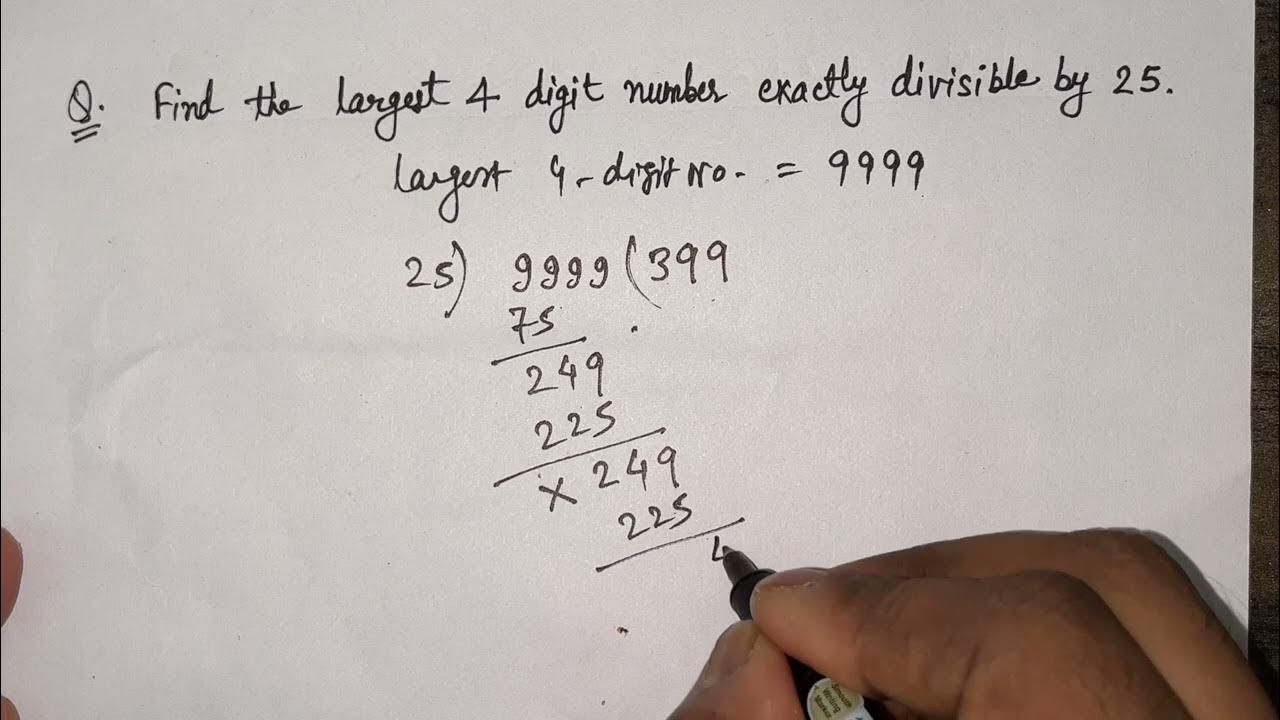 Q. Find the largest 4 digit number exactly divisible by 25.
largest 4-digit No. = 9999
25) 9999 (399
75
249
225
x 249
225
4
Smooth
Writing
Marker